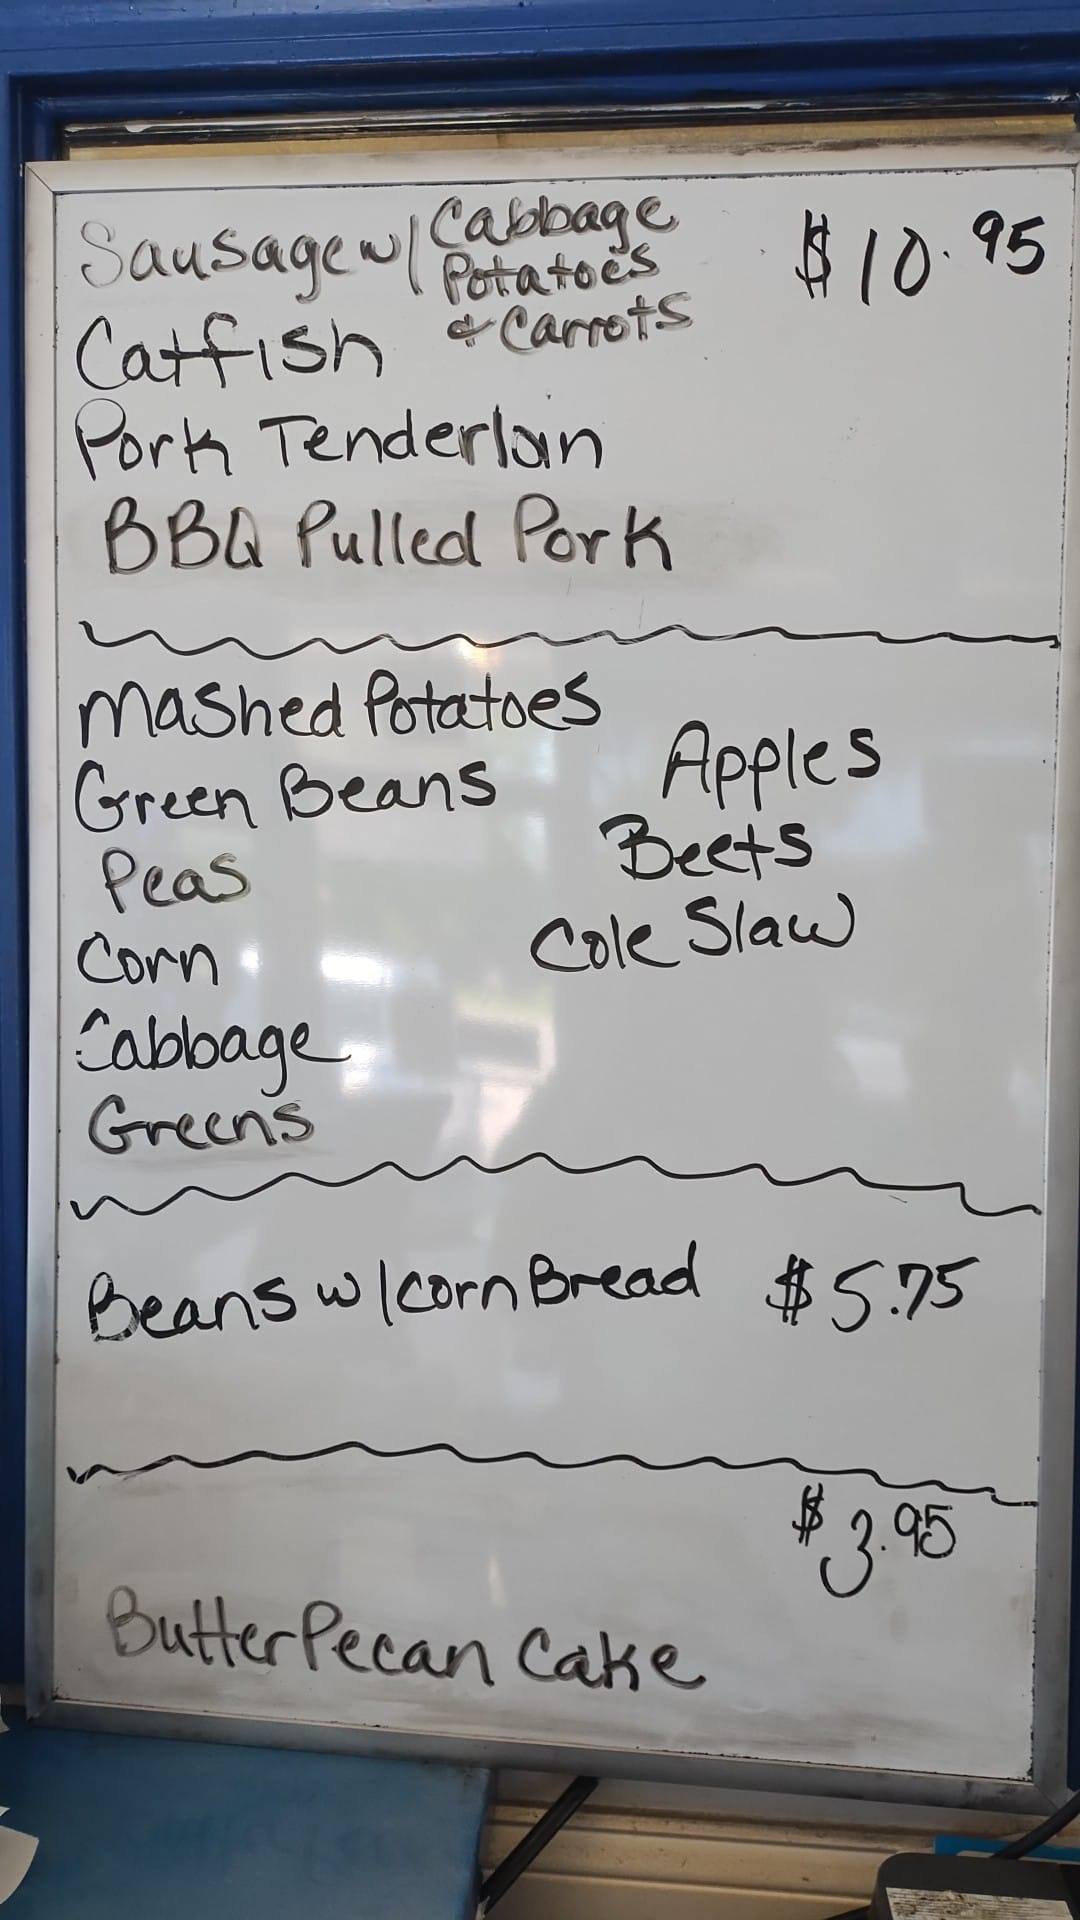 Sausage w/ Cabbage $10.95
Potatoes
& Carrots
Catfish
Pork Tenderloin
BBQ Pulled Pork
Mashed Potatoes
Green Beans
Peas
Corn
Cabbage
Greens
Apples
Beets
Cole Slaw
Beans w/ corn Bread $5.75
$3.95
Butter Pecan Cake